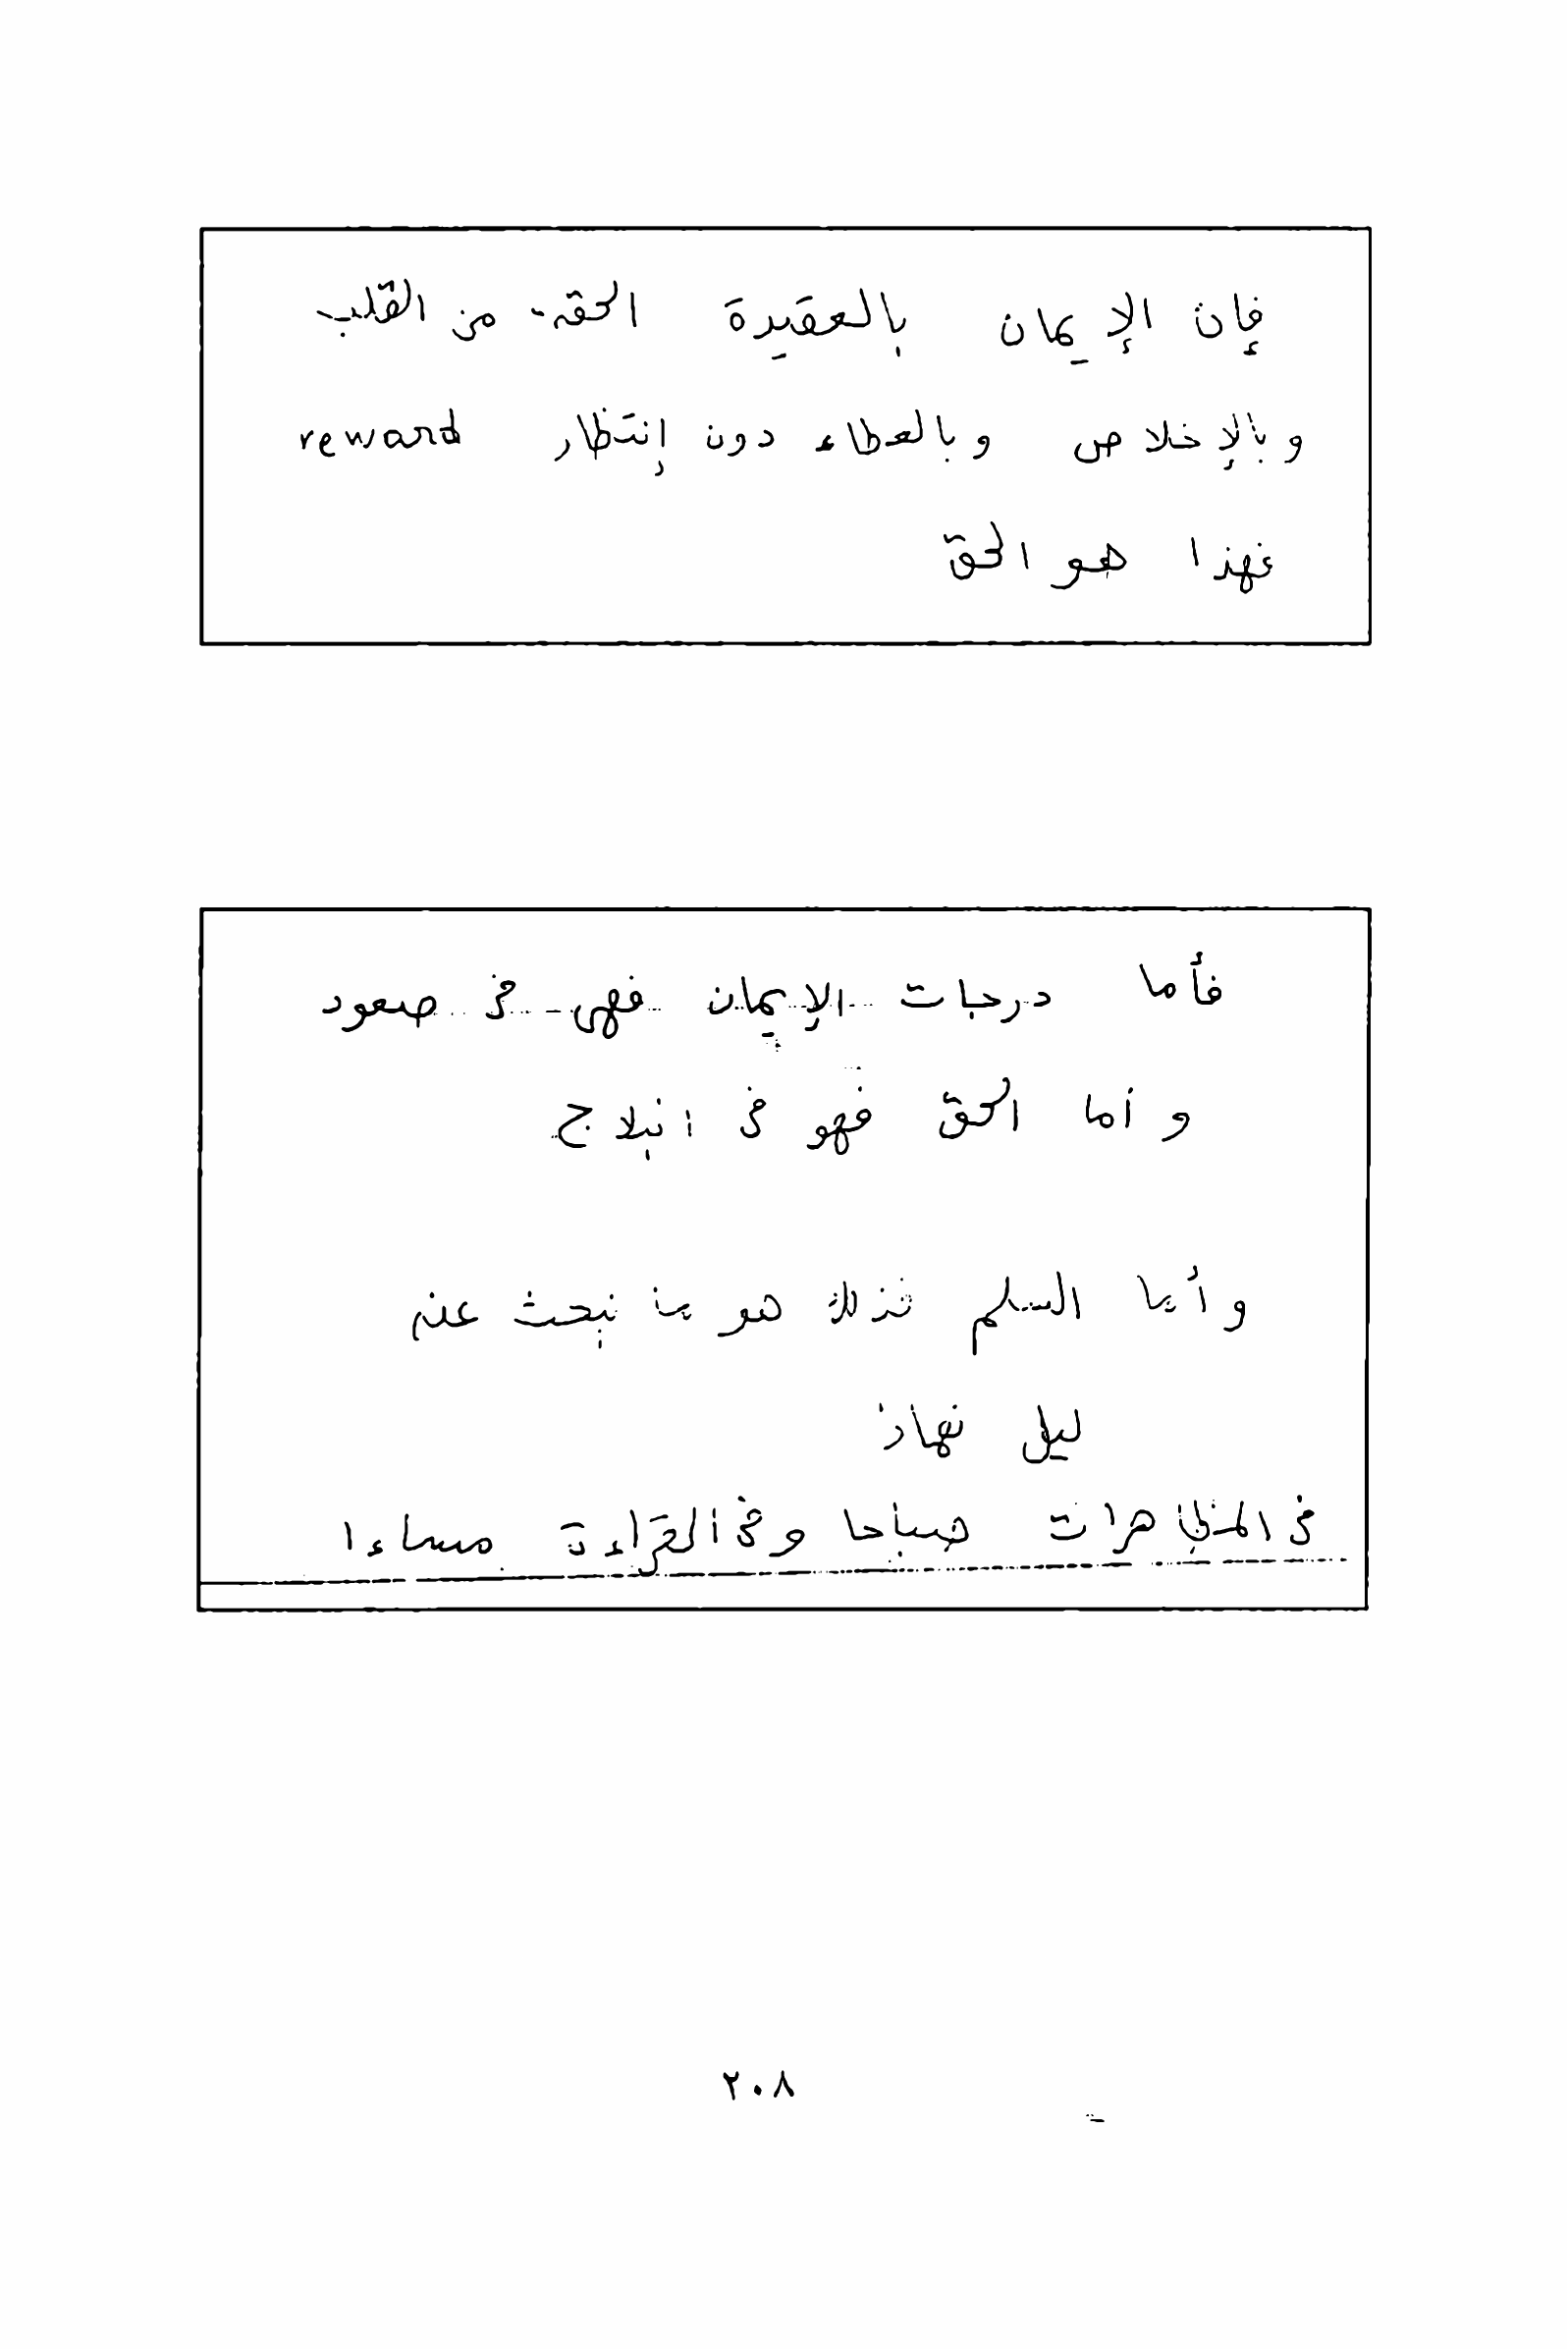 فإن الإيمان بالعقيدة الحقة من القلب
وبالإخلاص وبالعطاء دون إنتظار reward
فهذا هو الحق
فأما درجات الإيمان فهى فى صعود
وأما الحق فهو فى انبلاج
وأما السلم فذلك هو ما نبحث عنه
ليل نهار
فى المظاهرات صباحا وفى القراءة مساءا
٢٠٨